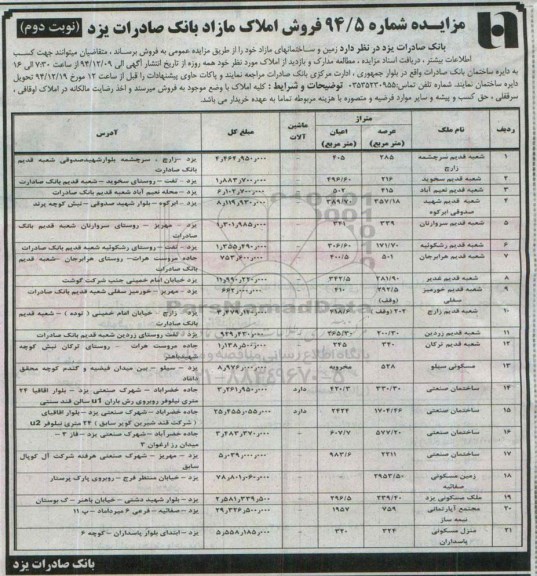 مزایده شماره ۹۴/۵ فروش املاک مازاد بانک صادرات یزد (نوبت دوم)
بانک صادرات یزد در نظر دارد زمین و ساختمانهای مازاد خود را از طریق مزایده عمومی به فروش برساند ، متقاضیان میتوانند جهت کسب
اطلاعات بیشتر ، دریافت اسناد مزایده ، مطالعه مدارک و بازدید از املاک مورد نظر خود همه روزه از تاریخ انتشار آگهی الی ۹۴/۱۲/۰۹ از ساعت ۷/۳۰ الی ۱۶
به دایره ساختمان بانک صادرات واقع در بلوار جمهوری ، اداره مرکزی بانک صادرات مراجعه نمایند و پاکات حاوی پیشنهادات را قبل از ساعت ۱۲ مورخ ۹۴/۱۲/۱۹ تحویل
دایره ساختمان نمایند. شماره تلفن تماس: ۰۳۵۳۵۲۳۰۹۵۵ توضیحات و شرایط : کلیه املاک با وضع موجود به فروش میرسند و اخذ رضایت مالکانه در املاک اوقافی ،
سرقفلی ، حق کسب و پیشه و سایر موارد قرضیه و متصوره با هزینه مربوطه تماما به عهده خریدار می باشد.
ردیف نام ملک متراژ عرصه (متر مربع) اعیان (متر مربع) ماشین آلات مبلغ کل آدرس
۱ شعبه قدیم سرچشمه زارچ ۲۸۵ ۴۰۵ - ۲٫۴۶۲٫۹۵۰٫۰۰۰ یزد – زارچ ، سرچشمه بلوار شهید صدوقی شعبه قدیم بانک صادارت
۲ شعبه قدیم سخوید ۲۱۶ ۲۹۶/۶۰ - ۱٫۸۸۳٫۷۰۰٫۰۰۰ یزد – تفت – روستای سخوید – شعبه قدیم بانک صادارت
۳ شعبه قدیم نعیم آباد ۴۱۵ ۵۰۲ - ۶٫۱۰۲٫۷۰۰٫۰۰۰ یزد – محله نعیم آباد شعبه قدیم بانک صادرات
۴ شعبه قدیم شهید صدوقی ابرکوه ۲۵۷/۱۸ ۳۸۹/۷۰ - ۸٫۱۱۹٫۹۳۰٫۰۰۰ یزد – ابرکوه – بلوار شهید صدوقی – نبش کوچه پرند
۵ شعبه قدیم سروازنان ۳۳۹ ۳۴۱ - ۱٫۳۰۱٫۹۸۵٫۰۰۰ یزد – مهریز – روستای سروازنان شعبه قدیم بانک صادرات
۶ شعبه قدیم رشکوئیه ۱۷۱/۷۰ ۳۰۶/۶۰ - ۱٫۳۵۵٫۲۹۰٫۰۰۰ یزد – تفت – روستای رشکوئیه شعبه قدیم بانک صادرات
۷ شعبه قدیم هرابرجان ۵۰۱ ۴۰۰/۵ - ۷۵۳٫۷۰۰٫۰۰۰ جاده مروست هرات – روستای هرابرجان – شعبه قدیم بانک صادرات
۸ شعبه قدیم غدیر ۲۸۱/۹۰ ۳۲۲/۵ - ۱۱٫۹۹۰٫۲۲۰٫۰۰۰ یزد – خیابان امام خمینی جنب شرکت گوشت
۹ شعبه قدیم خورمیز سفلی ۲۹۲/۵ (وقف) ۴۱۰ - ۶۶۲٫۰۰۰٫۰۰۰ یزد – مهریز – خورمیز سفلی شعبه قدیم بانک صادرات
۱۰ شعبه قدیم زارچ ۲۰۲ (وقف) ۲۱۸/۶۰ یزد – زارچ – خیابان امام خمینی ( توده ) – شعبه قدیم بانک صادارت
۱۱ شعبه قدیم زردین ۲۰۰/۳۰ ۲۶۵/۳۰ - ۹۶۹٫۴۳۰٫۰۰۰ یزد : تفت روستای زردین شعبه قدیم بانک صادرات
۱۲ شعبه قدیم ترکان ۳۴۰ ۲۴۵ - ۱٫۱۳۸٫۵۰۰٫۰۰۰ جاده مروست هرات – روستای ترکان نبش کوچه
۱۳ مسکونی سیلو ۵۲۸ مخروبه - ۸٫۹۷۶٫۰۰۰٫۰۰۰ یزد – سیلو – بین میدان فهمیده و گندم کوچه محقق داماد
۱۴ ساختمان صنعتی ۳۳۰/۳۰ ۴۲۰/۳ دارد ۳٫۲۶۱٫۹۵۰٫۰۰۰ جاده خضرآباد – شهرک صنعتی یزد – بلوار اقاقیا ۲۴ متری نیلوفر روبروی رش باران u1 سالن قند سنتی
۱۵ ساختمان صنعتی ۱۷۰۴/۴۶ ۲۴۲۲ دارد ۲۵٫۴۵۵٫۰۵۵٫۰۰۰ جاده خضرآباد – شهرک صنعتی یزد – بلوار اقاقیای ( شرکت قند شیرین کویر سابق ) ۲۴ متری نیلوفر u2
۱۶ ساختمان صنعتی ۵۷۷/۲۰ ۶۰۷/۷ - ۳٫۲۸۳٫۳۷۰٫۰۰۰ جاده خضرآباد – شهرک صنعتی یزد – فاز ۳ – میدان رز ارغوان ۳
۱۷ ساختمان صنعتی ۲۲۱۱ ۹۸۳/۶ - ۵٫۰۳۹٫۰۰۰٫۰۰۰ یزد – مهریز – شهرک صنعتی هرفته شرکت آل کوپال سابق
۱۸ زمین مسکونی صفائیه ۲۹۵۳/۵۰ - ۷۸٫۸۰۱٫۰۶۰٫۰۰۰ یزد – خیابان منتظر فرج – روبروی پارک پرستار
۱۹ ملک مسکونی یزد ۲۳۹/۴۰ ۲۹۶/۵ - ۲٫۵۸۱٫۳۳۹٫۵۰۰ یزد – بلوار شهید دشتی – خیابان باهنر – ک بوستان
۲۰ مجتمع آپارتمانی نیمه ساز ۷۵۹ ۱۹۵۷ - ۲۹٫۳۲۶٫۵۰۰٫۰۰۰ یزد – صفائیه – فرعی ۶ میرداماد – پ ۱۱
۲۱ منزل مسکونی پاسداران ۳۲۴ ۳۲۰ - ۵٫۵۵۸٫۱۸۵٫۰۰۰ یزد – ابتدای بلوار پاسداران – کوچه ۶
بانک صادرات یزد